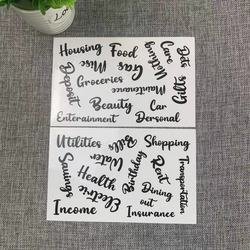 Lo
Housing
Food
Care
Dps
Gas
Misc
Nothing
Deposit
Groceries
Maintenance
Gifts
Beauty
Car
Entertainment
Dersonal
Utilities
Bills
Shopping
Water
Savings
Health
Birthday
Rent
Transportation
Electric
Dining
out
Income
Insurance